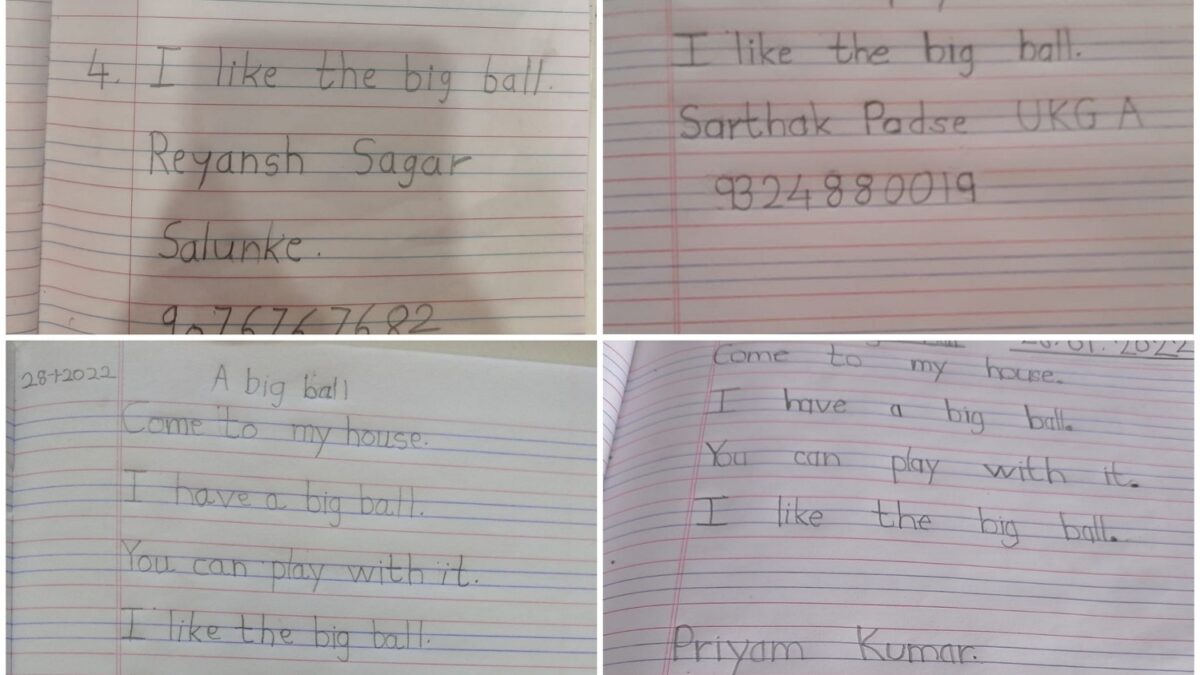 4. I like the big ball.
Reyansh Sagar
Salunke.
I like the big ball.
Sarthak Padse UKG A
9324880019
28-1-2022
A big ball
Come to my house.
I have a big ball.
You can play with it.
I like the big ball.
Come to my house.
I have a big ball.
You can play with it.
I like the big ball.
Priyam Kumar.